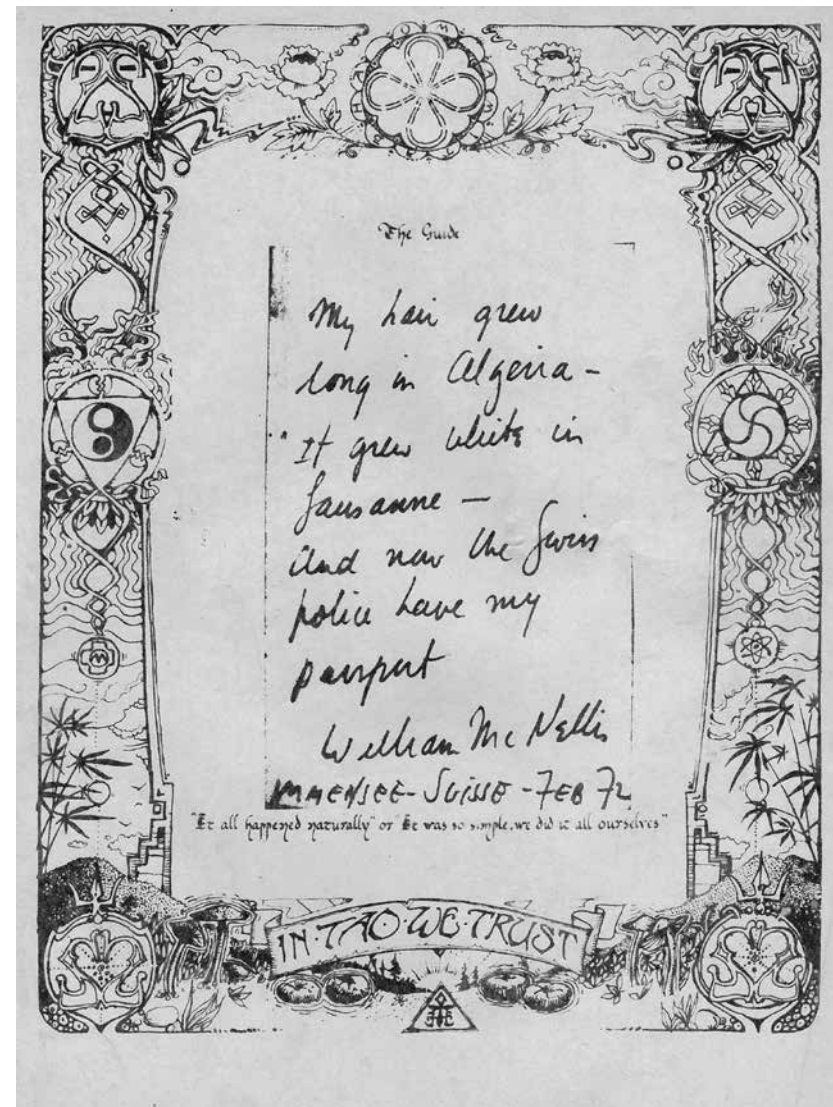 The Guide
My hair grew
long in Algeria -
It grew white in
Lausanne -
And now the Swiss
police have my
passport
William McNellis
IMMENSEE - SUISSE - FEB 72
"It all happened naturally" or "It was so simple, we did it all ourselves"
IN·TAO·WE·TRUST